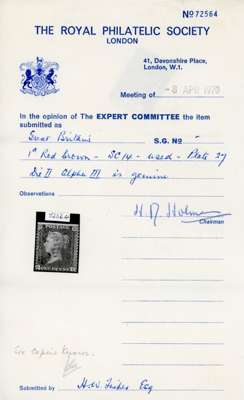 No 72564
THE ROYAL PHILATELIC SOCIETY
LONDON
41, Devonshire Place,
London, W.1.
Meeting of - 8 APR 1970
In the opinion of The EXPERT COMMITTEE the item
submitted as
Great Britain S.G. No "
1d Red brown - SC 14 - used - Plate 27
Die II Alpha III is genuine
Observations
H. R. Holmes
Chairman
72564
POSTAGE
ONE PENNY
Submitted by H.W. Fisher Esq